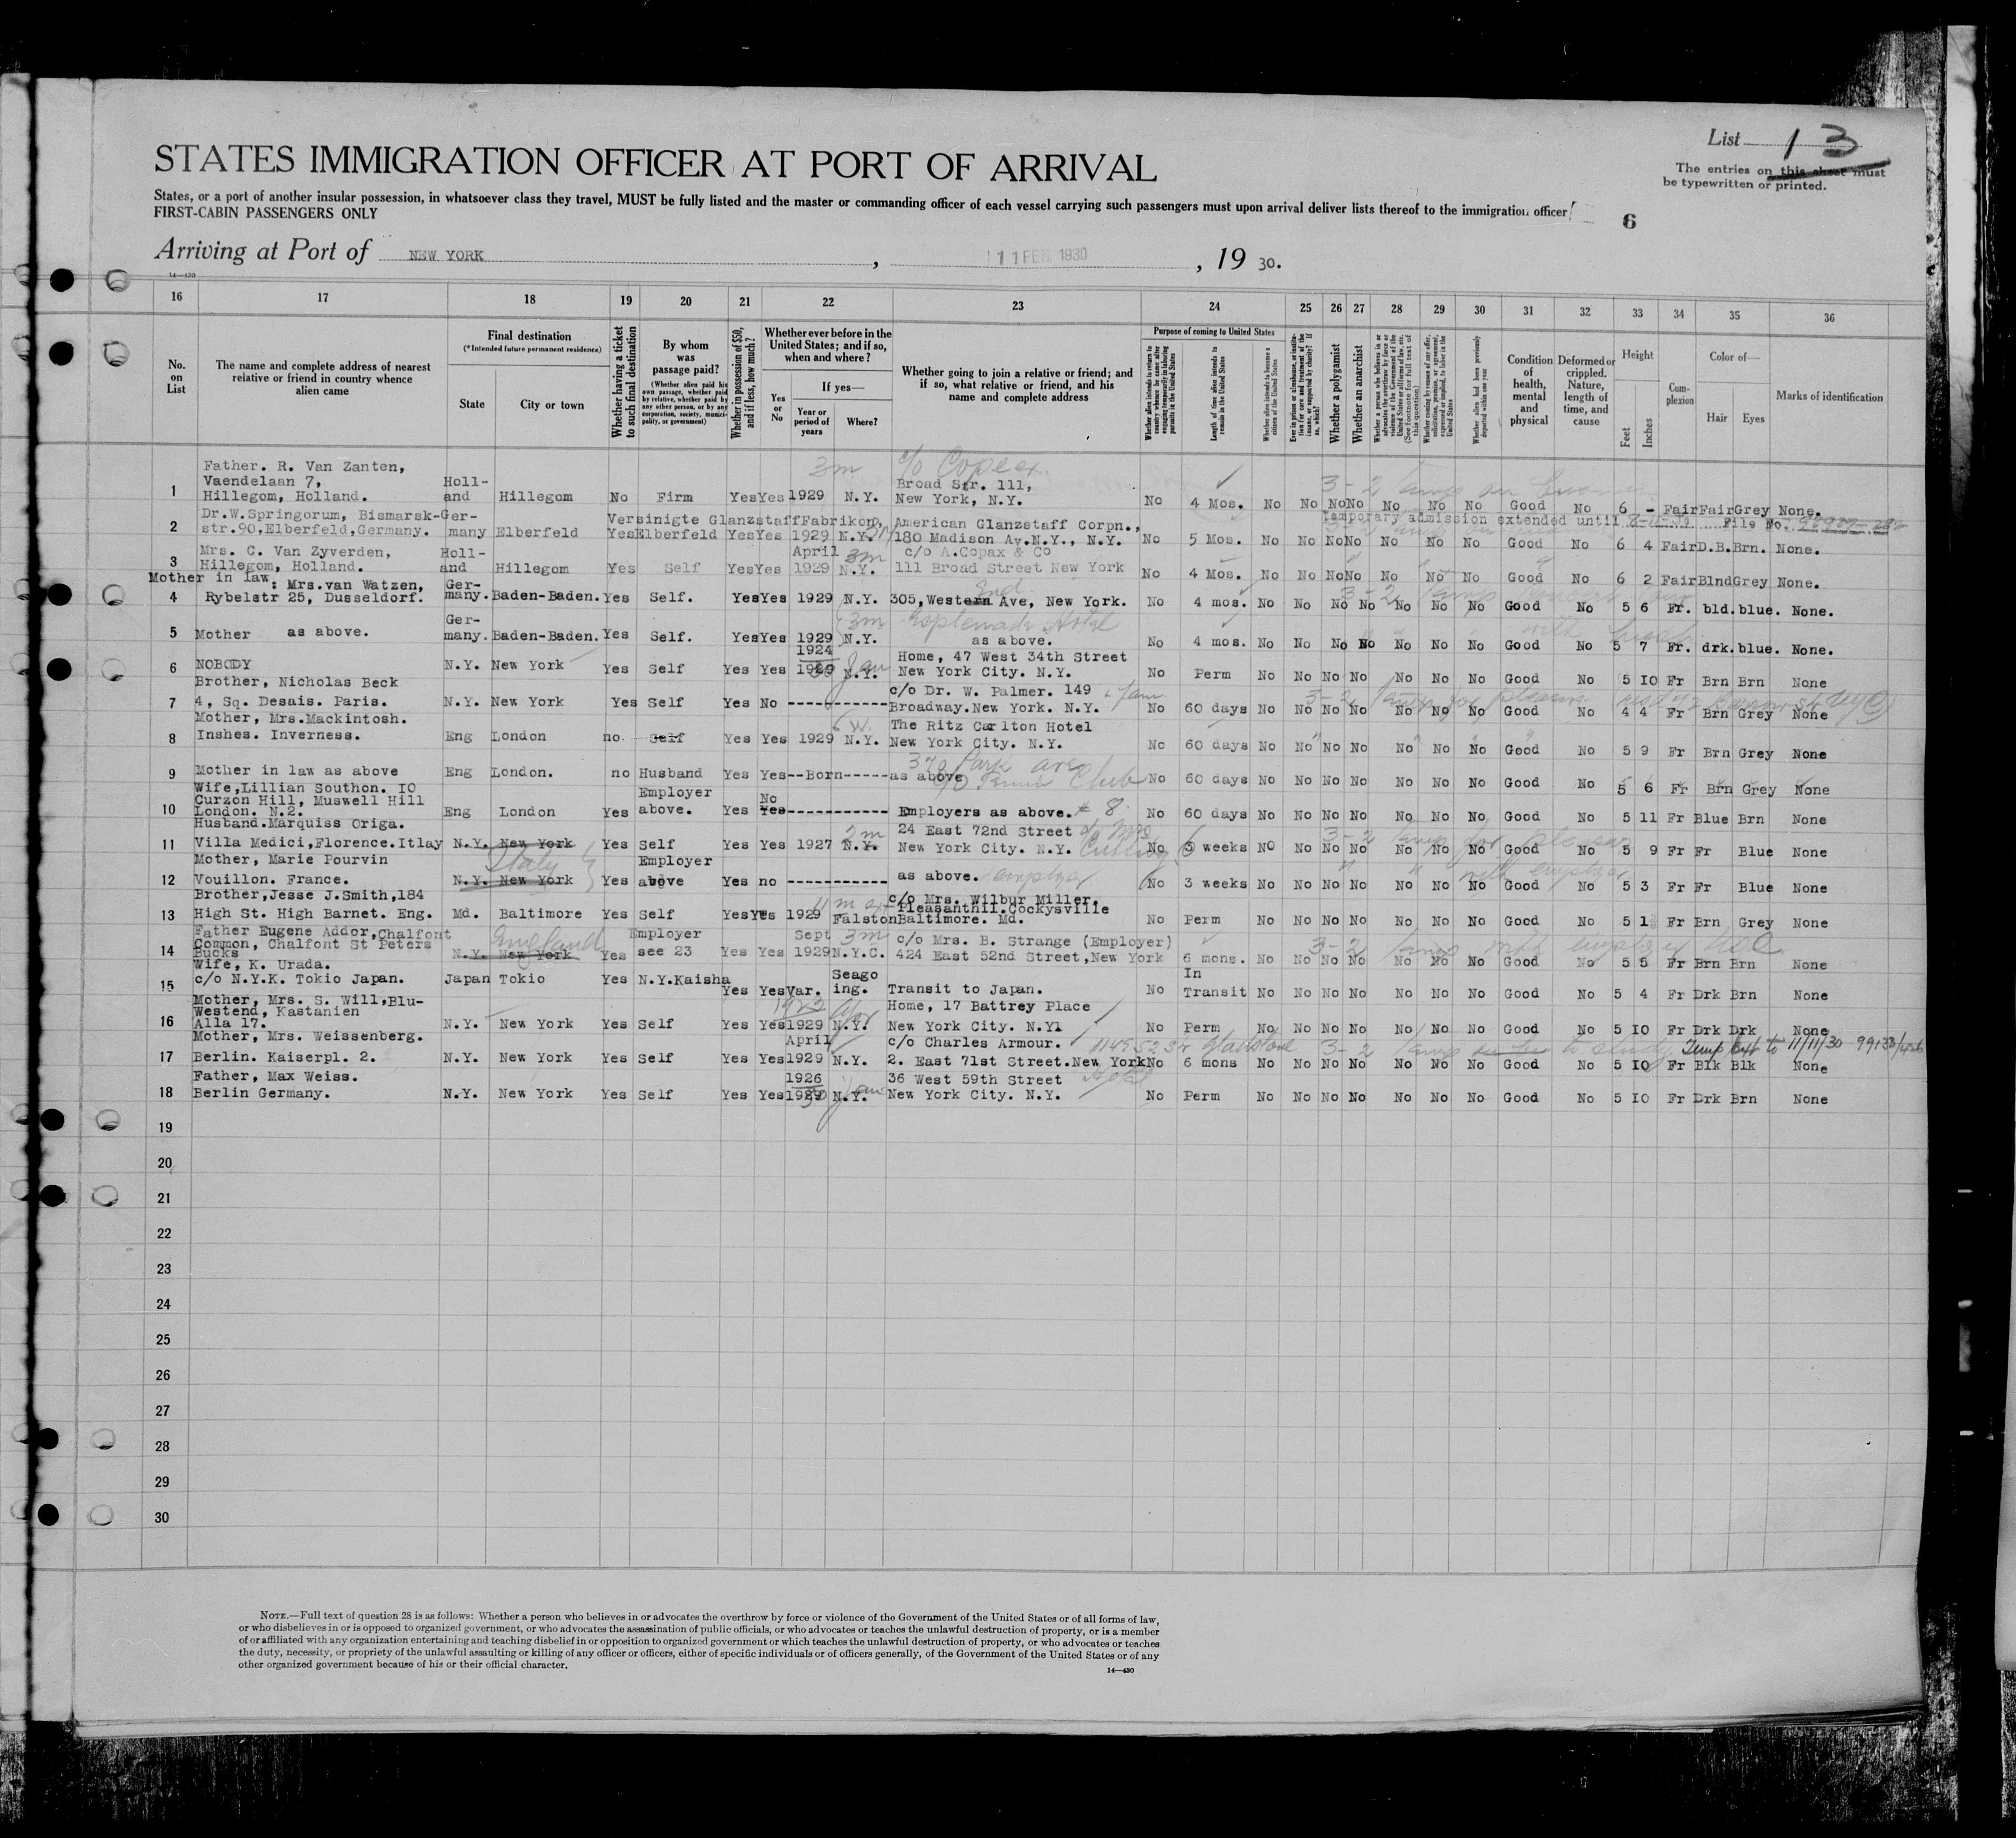 List 13
The entries on this sheet must
be typewritten or printed.
STATES IMMIGRATION OFFICER AT PORT OF ARRIVAL
States, or a port of another insular possession, in whatsoever class they travel, MUST be fully listed and the master or commanding officer of each vessel carrying such passengers must upon arrival deliver lists thereof to the immigration officer
FIRST-CABIN PASSENGERS ONLY
6
Arriving at Port of NEW YORK, 11 FEB 1930, 19 30.
14—430
16 17 18 19 20 21 22 23 24 25 26 27 28 29 30 31 32 33 34 35 36
No. on List
The name and complete address of nearest relative or friend in country whence alien came
Final destination
(*Intended future permanent residence)
State
City or town
Whether having a ticket to such final destination
By whom was passage paid?
(Whether alien paid his own passage, whether paid by relative, whether paid by any other person, or by any corporation, society, municipality, or government)
Whether in possession of $50, and if less, how much?
Whether ever before in the United States; and if so, when and where?
Yes or No
If yes—
Year or period of years
Where?
Whether going to join a relative or friend; and if so, what relative or friend, and his name and complete address
Purpose of coming to United States
Length of time alien intends to remain in the United States
Whether alien intends to become a citizen of the United States
Whether a polygamist
Whether an anarchist
Condition of health, mental and physical
Deformed or crippled. Nature, length of time, and cause
Height
Feet
Inches
Complexion
Color of—
Hair
Eyes
Marks of identification
1 Father. R. Van Zanten, Vaendelaan 7, Hillegom, Holland. Holland Hillegom No Firm Yes Yes 1929 N.Y. 3m Broad Str. 111, New York, N.Y. No 4 Mos. No No No No No No No Good No 6 - Fair Fair Grey None.
2 Dr.W.Springorum, Bismarsk-str.90,Elberfeld,Germany. Germany Elberfeld Yes Versinigte Glanzstaff Fabrikon, Elberfeld Yes Yes 1929 N.Y. American Glanzstaff Corpn., 180 Madison Av.N.Y., N.Y. No 5 Mos. No No No No No No No Good No 6 4 Fair D.B. Brn. None.
Temporary admission extended until File No.
3 Mrs. C. Van Zyverden, Hillegom, Holland. Holland Hillegom Yes Self Yes Yes April 1929 3m N.Y. c/o A.Copax & Co 111 Broad Street New York No 4 Mos. No No No No No No No Good No 6 2 Fair Blnd Grey None.
4 Mother in law: Mrs.van Watzen, Rybelstr 25, Dusseldorf. Germany. Baden-Baden. Yes Self. Yes Yes 1929 N.Y. 305,Western End Ave, New York. No 4 mos. No No No No No No No Good No 5 6 Fr. bld. blue. None.
5 Mother as above. Germany. Baden-Baden. Yes Self. Yes Yes 1929 3m N.Y. Esplenade Hotel as above. No 4 mos. No No No No No No No Good No 5 7 Fr. drk. blue. None.
6 NOBODY N.Y. New York Yes Self Yes Yes 1924 1929 Jan N.Y. Home, 47 West 34th Street New York City. N.Y. No Perm No No No No No No No Good No 5 10 Fr Brn Brn None
7 Brother, Nicholas Beck 4, Sq. Desais. Paris. N.Y. New York Yes Self Yes No ----------- c/o Dr. W. Palmer. 149 Broadway.New York. N.Y. No 60 days No No No No No No No Good No 4 4 Fr Brn Grey None
8 Mother, Mrs.Mackintosh. Inshes. Inverness. Eng London no Self Yes Yes 1929 N.Y. The Ritz Carlton Hotel New York City. N.Y. No 60 days No No No No No No No Good No 5 9 Fr Brn Grey None
9 Mother in law as above Eng London. no Husband Yes Yes--Born-----as above 370 Park ave Club No 60 days No No No No No No No Good No 5 6 Fr Brn Grey None
10 Wife,Lillian Southon. 10 Curzon Hill, Muswell Hill London. N.2. Eng London Yes Employer above. Yes No Yes------------ Employers as above. # 8 No 60 days No No No No No No No Good No 5 11 Fr Blue Brn None
11 Husband.Marquiss Origa. Villa Medici,Florence.Itlay N.Y. New York Italy Yes Self Yes Yes 1927 2m N.Y. 24 East 72nd Street New York City. N.Y. c/o Mrs Cutting No 3 weeks NO No No No No No No Good No 5 9 Fr Fr Blue None
12 Mother, Marie Pourvin Vouillon. France. N.Y. New York Yes Employer above Yes no ----------- as above. employer No 3 weeks No No No No No No No Good No 5 3 Fr Fr Blue None
13 Brother,Jesse J.Smith,184 High St. High Barnet. Eng. Md. Baltimore Yes Self Yes Yes 1929 Falston c/o Mrs. Wilbur Miller. Pleasanthil.Cockysville Baltimore. Md. No Perm No No No No No No No Good No 5 1 Fr Brn Grey None
14 Father Eugene Addor,Chalfont Common, Chalfont St Peters Bucks N.Y. New York England Yes Employer see 23 Yes Yes Sept 1929 3m N.Y.C. c/o Mrs. B. Strange (Employer) 424 East 52nd Street,New York 6 mons. No No No No No No No Good No 5 5 Fr Brn Brn None
15 Wife, K. Urada. c/o N.Y.K. Tokio Japan. Japan Tokio Yes N.Y.Kaisha Yes Yes Var. Seagoing. Transit to Japan. No In Transit No No No No No No No Good No 5 4 Fr Drk Brn None
16 Mother, Mrs. S. Will,Blu-Westend, Kastanien Alla 17. N.Y. New York Yes Self Yes Yes 1923 1929 N.Y. Home, 17 Battrey Place New York City. N.Yl No Perm No No No No No No No Good No 5 10 Fr Drk Drk None
17 Mother, Mrs. Weissenberg. Berlin. Kaiserpl. 2. N.Y. New York Yes Self Yes Yes April 1929 N.Y. c/o Charles Armour. 2. East 71st Street.New York No 6 mons No No No No No No No Good No 5 10 Fr Blk Blk None
Temp Ext to 11/11/30
18 Father, Max Weiss. Berlin Germany. N.Y. New York Yes Self Yes Yes 1926 1929 N.Y. 36 West 59th Street New York City. N.Y. No Perm No No No No No No No Good No 5 10 Fr Drk Brn None
19
20
21
22
23
24
25
26
27
28
29
30
NOTE.—Full text of question 28 is as follows: Whether a person who believes in or advocates the overthrow by force or violence of the Government of the United States or of all forms of law,
or who disbelieves in or is opposed to organized government, or who advocates the assassination of public officials, or who advocates or teaches the unlawful destruction of property, or is a member
of or affiliated with any organization entertaining and teaching disbelief in or opposition to organized government or which teaches the unlawful destruction of property, or who advocates or teaches
the duty, necessity, or propriety of the unlawful assaulting or killing of any officer or officers, either of specific individuals or of officers generally, of the Government of the United States or of any
other organized government because of his or their official character.
14—430